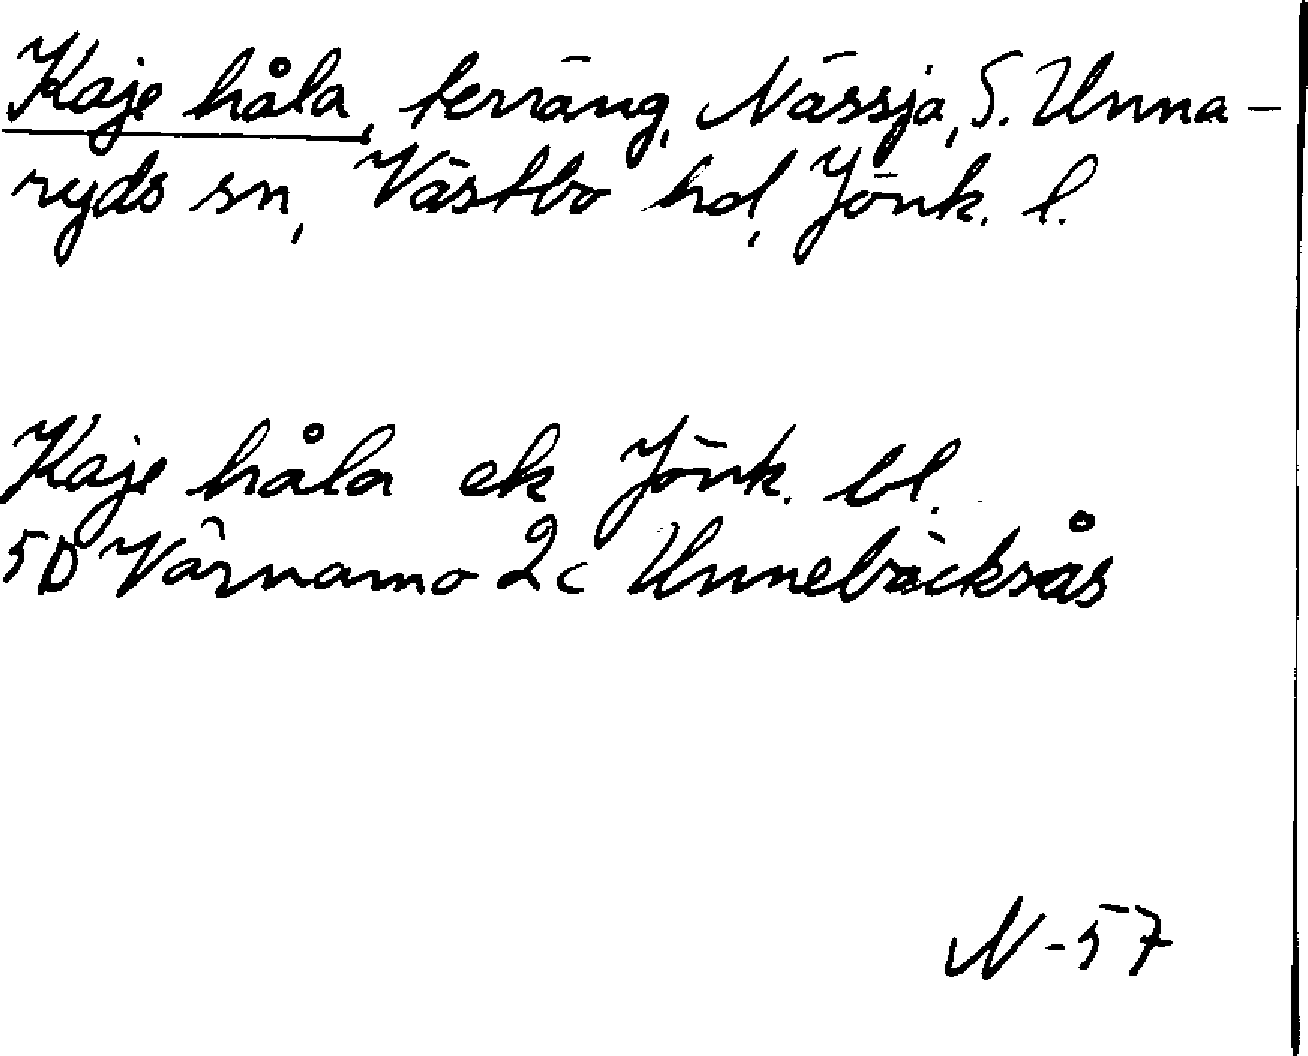 Kaje håla, terräng, Nässja, S. Unna-
ryds sn, Västbo hd, Jönk. l.
Kaje håla ek Jönk. bl.
5D Värnamo 2c Unnebäcksås
N-57